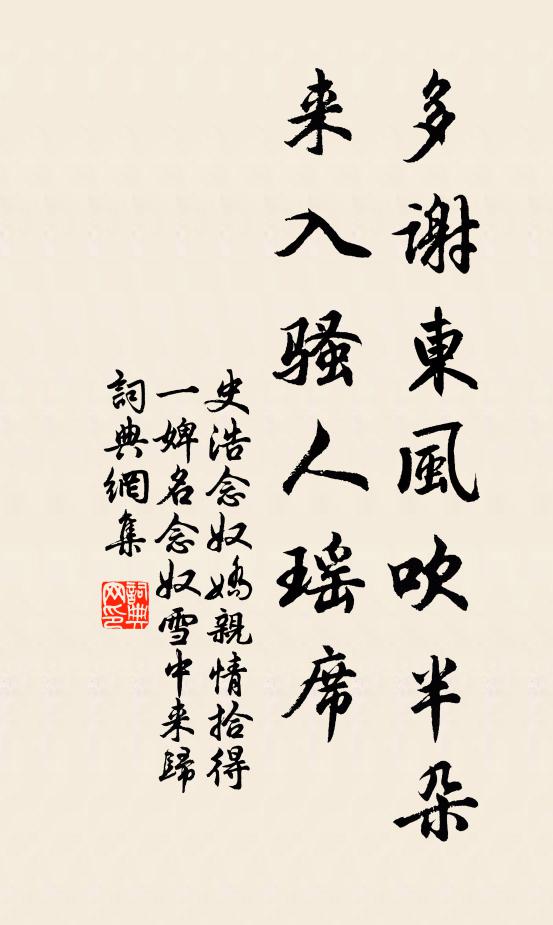 多謝東風吹半朶
来入騷人瑶席
史浩念奴嬌親情拾得
一婢名念奴雪中来歸
詞典網集
詞典网印